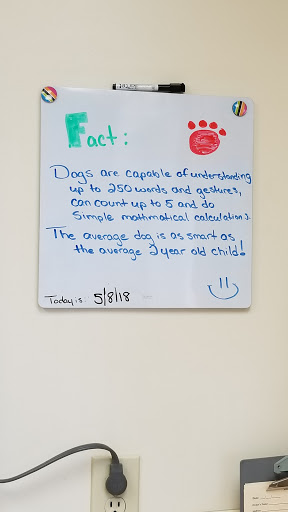 Fact:
Dogs are capable of understanding
up to 250 words and gestures,
can count up to 5 and do
simple mathmatical calculations.
The average dog is as smart as
the average 2 year old child!
Today is: 5/8/18